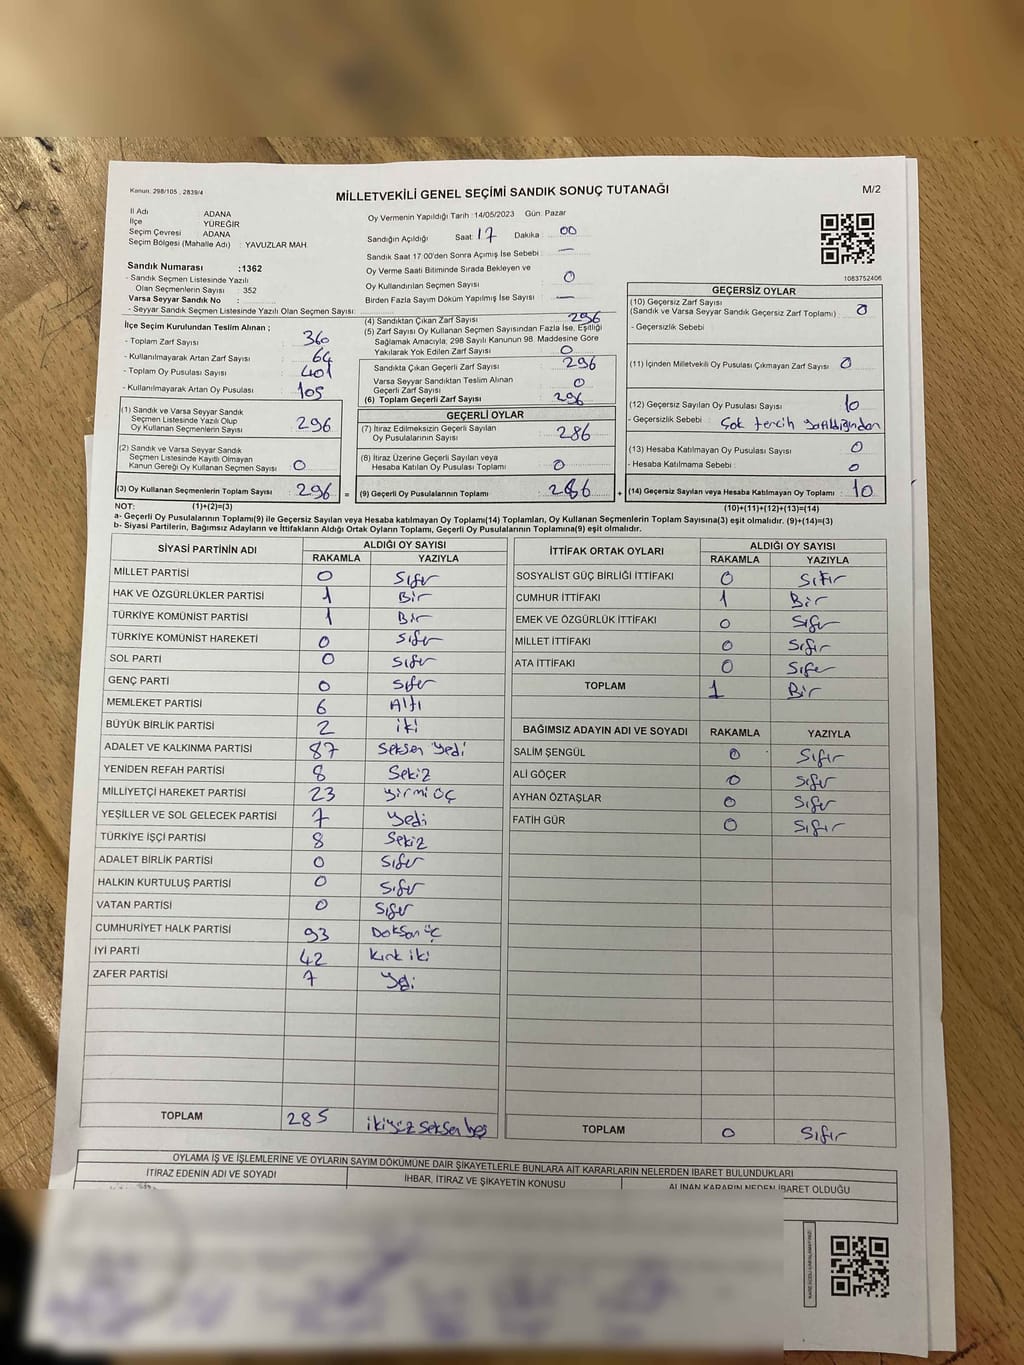 Kanun: 298/105 , 2839/4
MİLLETVEKİLİ GENEL SEÇİMİ SANDIK SONUÇ TUTANAĞI
M/2
İl Adı ADANA
İlçe YÜREĞİR
Seçim Çevresi ADANA
Seçim Bölgesi (Mahalle Adı) : YAVUZLAR MAH.
Sandık Numarası :1362
- Sandık Seçmen Listesinde Yazılı
Olan Seçmenlerin Sayısı : 352
Varsa Seyyar Sandık No :
- Seyyar Sandık Seçmen Listesinde Yazılı Olan Seçmen Sayısı:
Oy Vermenin Yapıldığı Tarih :14/05/2023 Gün: Pazar
Sandığın Açıldığı Saat: 17 Dakika : 00
Sandık Saat 17:00'den Sonra Açımış İse Sebebi : —
Oy Verme Saati Bitiminde Sırada Bekleyen ve
Oy Kullandırılan Seçmen Sayısı : 0
Birden Fazla Sayım Döküm Yapılmış İse Sayısı : —
1083752406
İlçe Seçim Kurulundan Teslim Alınan ;
- Toplam Zarf Sayısı : 360
- Kullanılmayarak Artan Zarf Sayısı : 64
- Toplam Oy Pusulası Sayısı : 401
- Kullanılmayarak Artan Oy Pusulası : 105
(1) Sandık ve Varsa Seyyar Sandık
Seçmen Listesinde Yazılı Olup
Oy Kullanan Seçmenlerin Sayısı : 296
(2) Sandık ve Varsa Seyyar Sandık
Seçmen Listesinde Kayıtlı Olmayan
Kanun Gereği Oy Kullanan Seçmen Sayısı : 0
(3) Oy Kullanan Seçmenlerin Toplam Sayısı : 296 =
(4) Sandıktan Çıkan Zarf Sayısı : 296
(5) Zarf Sayısı Oy Kullanan Seçmen Sayısından Fazla İse, Eşitliği
Sağlamak Amacıyla; 298 Sayılı Kanunun 98. Maddesine Göre
Yakılarak Yok Edilen Zarf Sayısı : 0
Sandıkta Çıkan Geçerli Zarf Sayısı : 296
Varsa Seyyar Sandıktan Teslim Alınan
Geçerli Zarf Sayısı : 0
(6) Toplam Geçerli Zarf Sayısı : 296
GEÇERLİ OYLAR
(7) İtiraz Edilmeksizin Geçerli Sayılan
Oy Pusulalarının Sayısı : 286
(8) İtiraz Üzerine Geçerli Sayılan veya
Hesaba Katılan Oy Pusulası Toplamı : 0
(9) Geçerli Oy Pusulalarının Toplamı : 286 +
GEÇERSİZ OYLAR
(10) Geçersiz Zarf Sayısı
(Sandık ve Varsa Seyyar Sandık Geçersiz Zarf Toplamı) : 0
- Geçersizlik Sebebi :
(11) İçinden Milletvekili Oy Pusulası Çıkmayan Zarf Sayısı : 0
(12) Geçersiz Sayılan Oy Pusulası Sayısı : 10
- Geçersizlik Sebebi : Çok tercih yapıldığından
(13) Hesaba Katılmayan Oy Pusulası Sayısı : 0
- Hesaba Katılmama Sebebi : 0
(14) Geçersiz Sayılan veya Hesaba Katılmayan Oy Toplamı : 10
NOT: (1)+(2)=(3) (10)+(11)+(12)+(13)=(14)
a- Geçerli Oy Pusulalarının Toplamı(9) ile Geçersiz Sayılan veya Hesaba katılmayan Oy Toplamı(14) Toplamları, Oy Kullanan Seçmenlerin Toplam Sayısına(3) eşit olmalıdır. (9)+(14)=(3)
b- Siyasi Partilerin, Bağımsız Adayların ve İttifakların Aldığı Ortak Oyların Toplamı, Geçerli Oy Pusulalarının Toplamına(9) eşit olmalıdır.
SİYASİ PARTİNİN ADI ALDIĞI OY SAYISI
RAKAMLA YAZIYLA
MİLLET PARTİSİ 0 Sıfır
HAK VE ÖZGÜRLÜKLER PARTİSİ 1 Bir
TÜRKİYE KOMÜNİST PARTİSİ 1 Bir
TÜRKİYE KOMÜNİST HAREKETİ 0 Sıfır
SOL PARTİ 0 Sıfır
GENÇ PARTİ 0 Sıfır
MEMLEKET PARTİSİ 6 Altı
BÜYÜK BİRLİK PARTİSİ 2 iki
ADALET VE KALKINMA PARTİSİ 87 Seksen Yedi
YENİDEN REFAH PARTİSİ 8 Sekiz
MİLLİYETÇİ HAREKET PARTİSİ 23 Yirmi üç
YEŞİLLER VE SOL GELECEK PARTİSİ 7 Yedi
TÜRKİYE İŞÇİ PARTİSİ 8 Sekiz
ADALET BİRLİK PARTİSİ 0 Sıfır
HALKIN KURTULUŞ PARTİSİ 0 Sıfır
VATAN PARTİSİ 0 Sıfır
CUMHURİYET HALK PARTİSİ 93 Doksan üç
İYİ PARTİ 42 Kırk iki
ZAFER PARTİSİ 7 Yedi
TOPLAM 285 ikiyüz Seksen beş
İTTİFAK ORTAK OYLARI ALDIĞI OY SAYISI
RAKAMLA YAZIYLA
SOSYALİST GÜÇ BİRLİĞİ İTTİFAKI 0 Sıfır
CUMHUR İTTİFAKI 1 Bir
EMEK VE ÖZGÜRLÜK İTTİFAKI 0 Sıfır
MİLLET İTTİFAKI 0 Sıfır
ATA İTTİFAKI 0 Sıfır
TOPLAM 1 Bir
BAĞIMSIZ ADAYIN ADI VE SOYADI RAKAMLA YAZIYLA
SALİM ŞENGÜL 0 Sıfır
ALİ GÖÇER 0 Sıfır
AYHAN ÖZTAŞLAR 0 Sıfır
FATİH GÜR 0 Sıfır
TOPLAM 0 Sıfır
OYLAMA İŞ VE İŞLEMLERİNE VE OYLARIN SAYIM DÖKÜMÜNE DAİR ŞİKAYETLERLE BUNLARA AİT KARARLARIN NELERDEN İBARET BULUNDUKLARI
İTİRAZ EDENİN ADI VE SOYADI İHBAR, İTİRAZ VE ŞİKAYETİN KONUSU ALINAN KARARIN NEDEN İBARET OLDUĞU